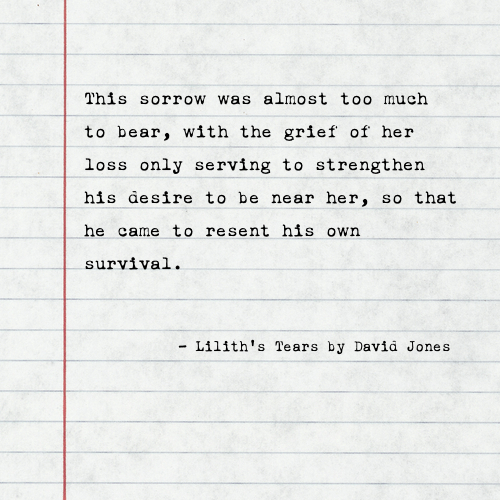 This sorrow was almost too much
to bear, with the grief of her
loss only serving to strengthen
his desire to be near her, so that
he came to resent his own
survival.
- Lilith's Tears by David Jones